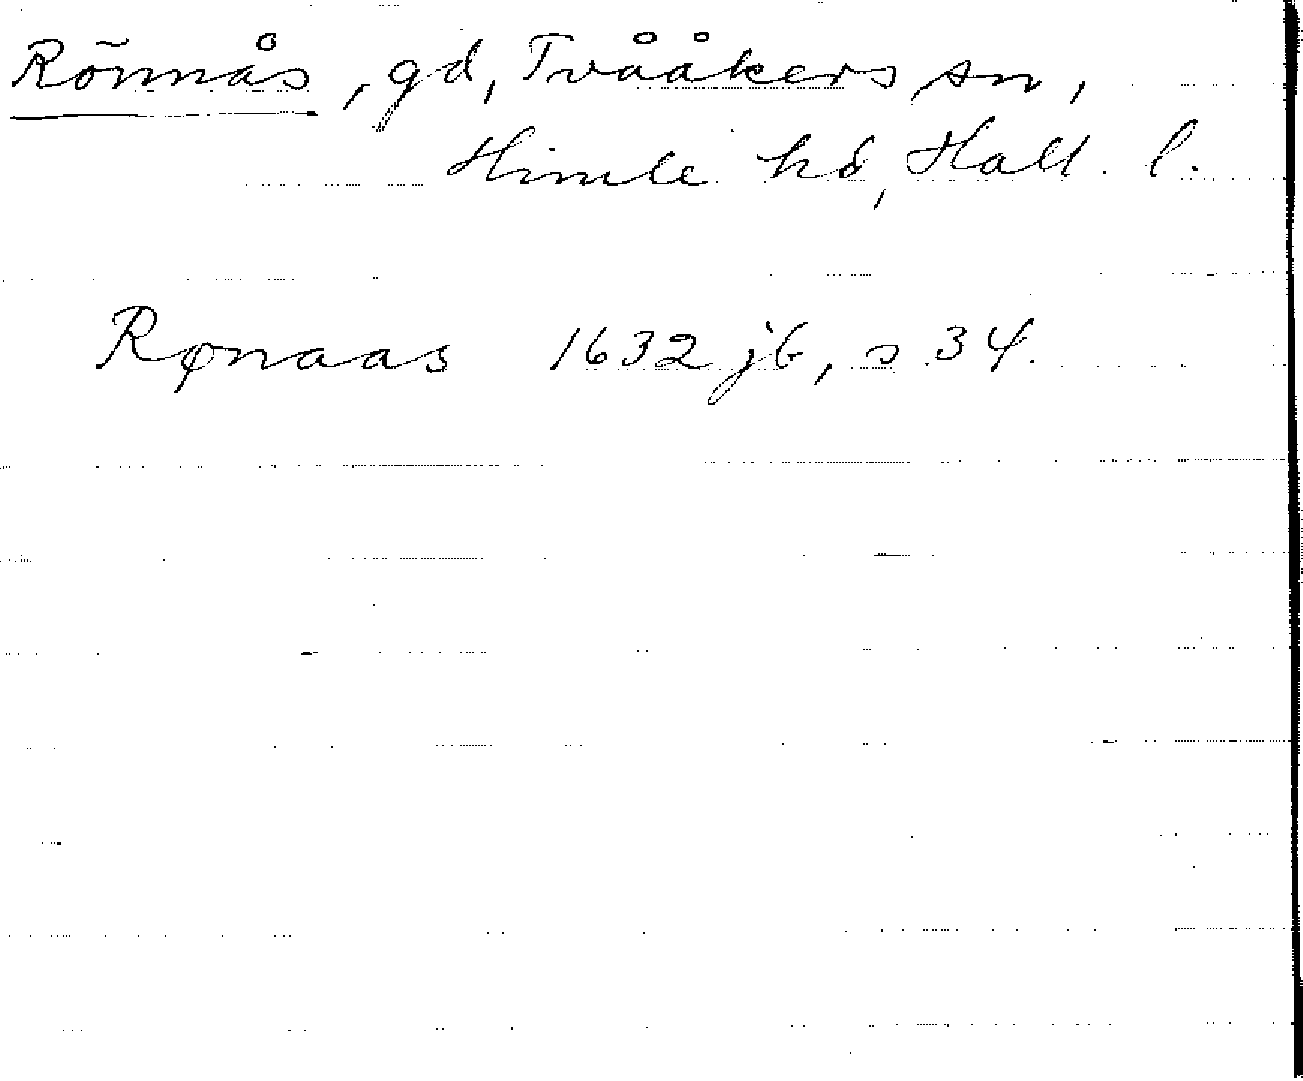 Rönnås, gd, Tvååkers sn,
Himle hd, Hall. l.
Rønaas 1632 jb, s 34.